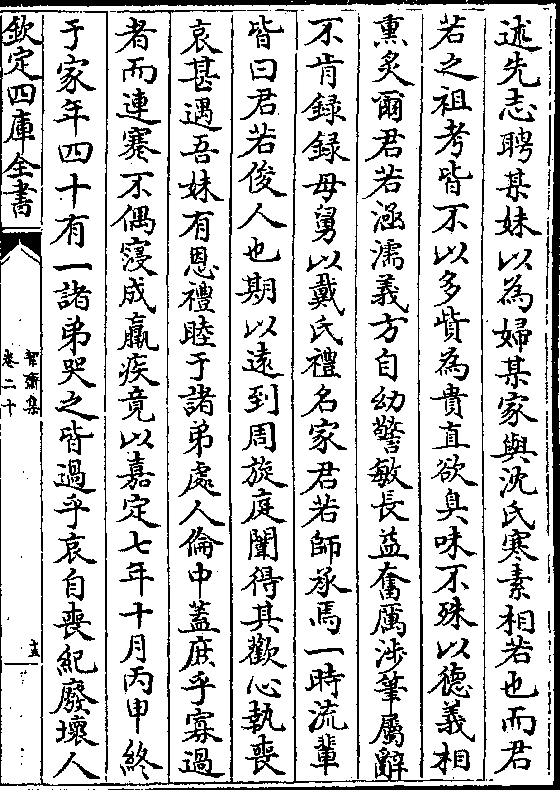 述先志聘某妹以為婦某家與沈氏寒素相若也而君
若之祖考皆不以多貲為貴直欲臭味不殊以德義相
熏炙爾君若涵濡義方自幼警敏長益奮厲涉筆屬辭
不肯録録母舅以戴氏禮名家君若師承焉一時流輩
皆曰君若俊人也期以遠到周旋庭闈得其歡心執喪
哀甚遇吾妹有恩禮睦于諸弟處人倫中蓋庶乎寡過
者而連蹇不偶寖成羸疾竟以嘉定七年十月丙申終
于家年四十有一諸弟哭之皆過乎哀自喪紀廢壞人
欽定四庫全書
絜齋集
卷二十